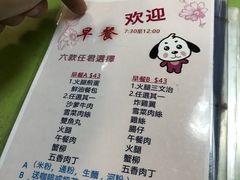 早餐 欢迎
7:30至12:00
六款任君選擇
早餐A $43
1.火腿煎蛋
鮮油餐包
2.任選其一
沙爹牛肉
雪菜肉絲
雙魚丸
火腿
午餐肉
蟹柳
五香肉丁
早餐B $43
1.火腿三文治
2.任選其一
炸雞翼
雪菜肉絲
雞絲
腸仔
午餐肉
火腿
蟹柳
五香肉丁
A (米粉，通粉，生麵，河粉)
B 送咖啡或